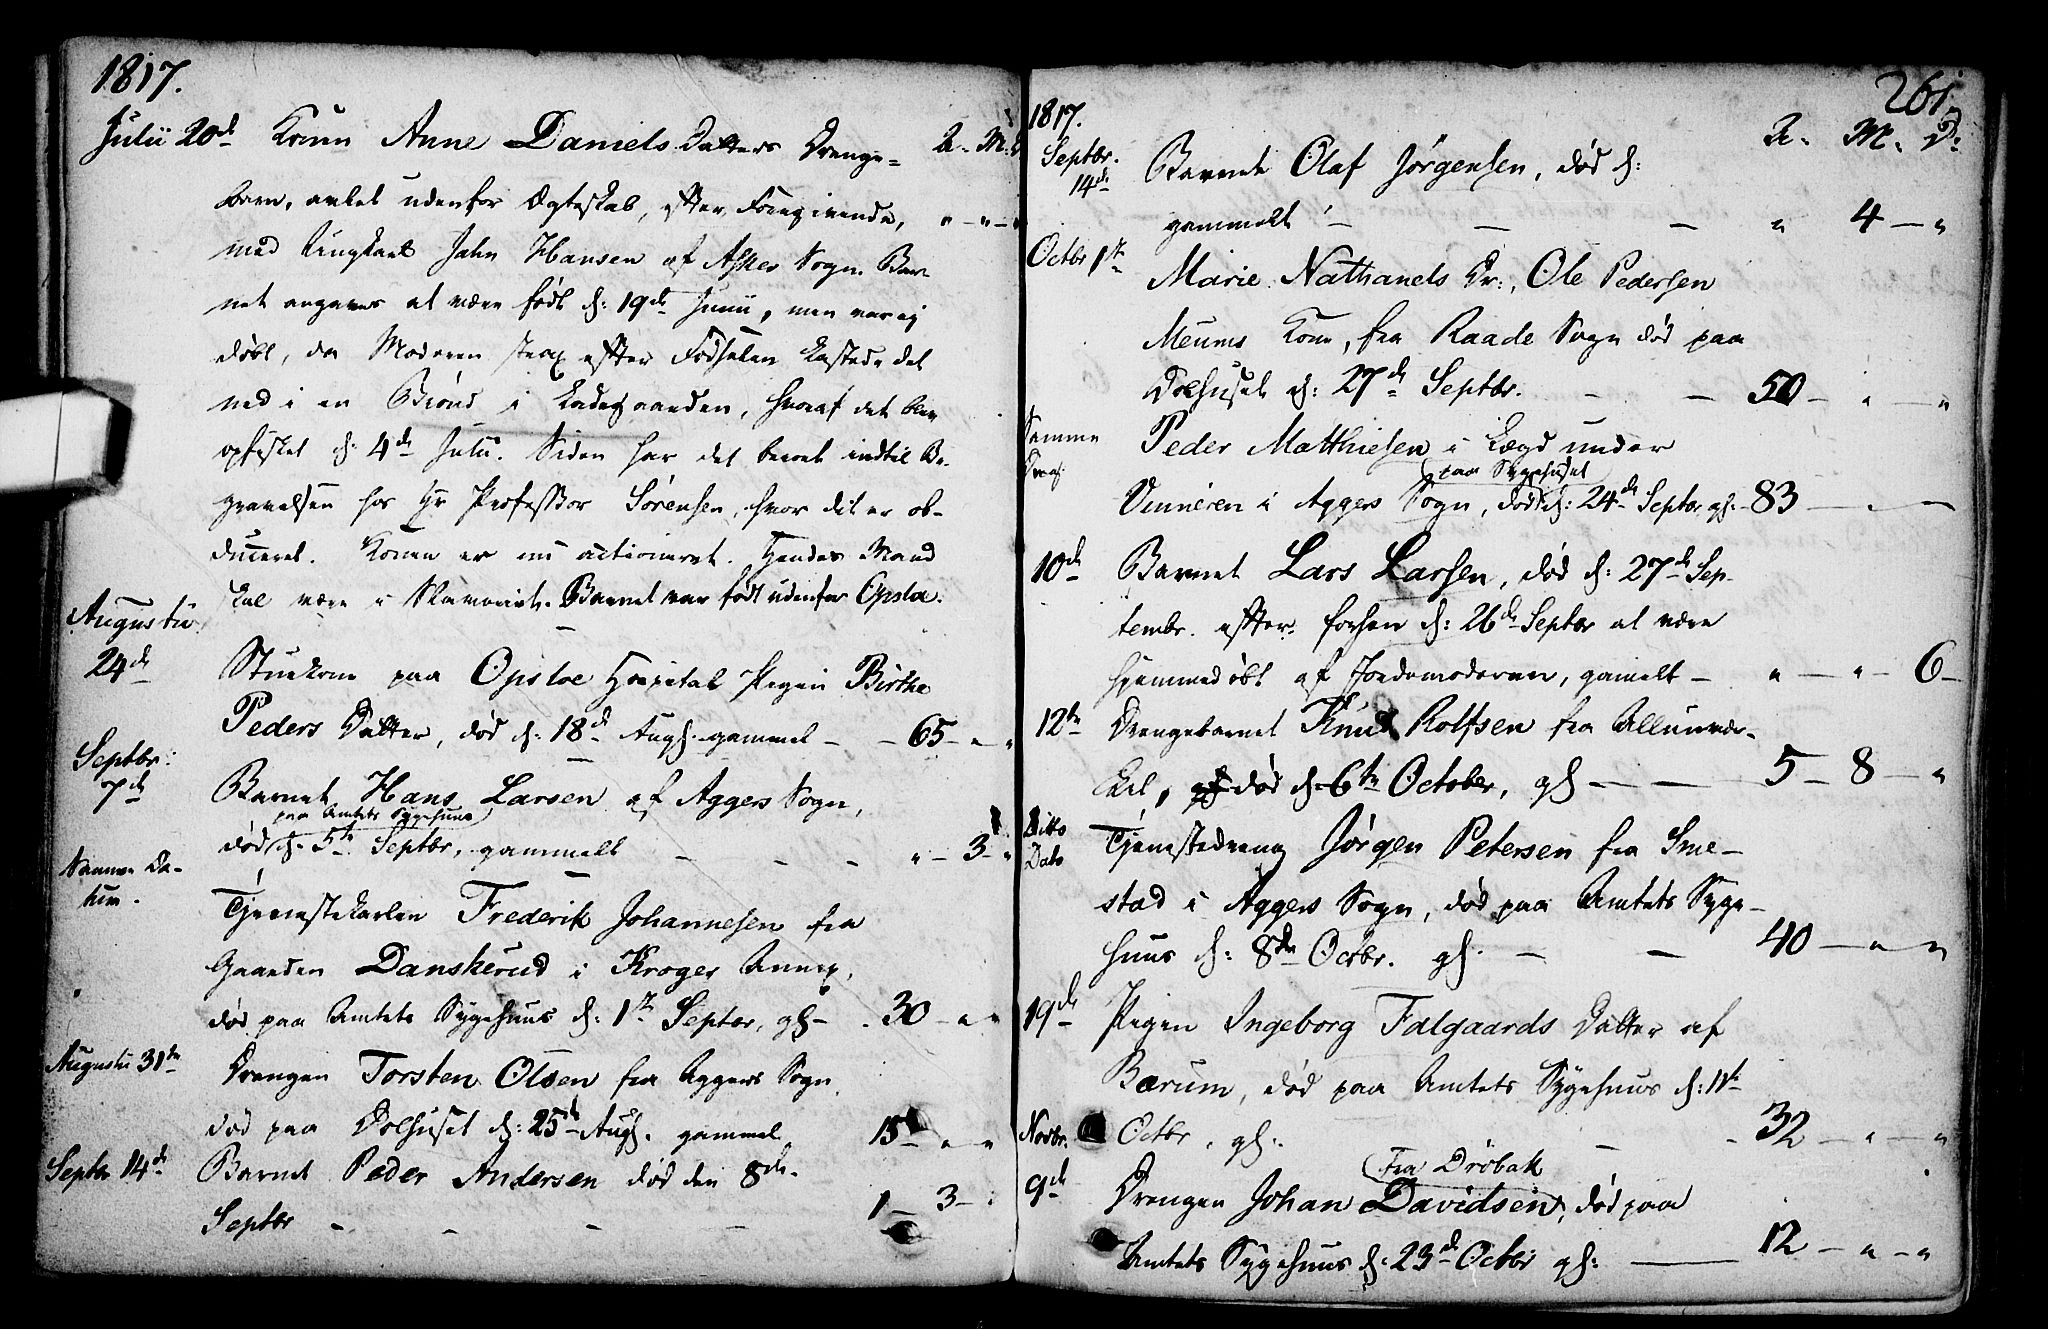 1817.
Julii 20de Konen Anne Daniels Datters Drenge= A. M.
barn, avlet udenfor Ægteskab, efter Foregivende, " - " - "
med Ungkarl John Hansen af Asker Sogn. Bar-
net angaves at være født d: 19de Junii, men var ej
døbt, da Moderen strax efter Fødselen kastede det
ned i en Brønd i Ladegaarden, hvoraf det blev
opfisket d: 4de Julii. Siden har det beroet indtil Be-
gravelsen hos Hr Professor Sørensen, hvor det er ob-
duceret. Konen er nu actioneret. Hendes Mand
skal være i Slaveriet. Barnet var født udenfor Opsloe.
Augustii
24de Stuekone paa Opsloe Hospital Pigen Birthe
Peders Datter, død d: 18de Augs. gammel - - 65 - " - "
Septbr:
7de Barnet Hans Larsen af Aggers Sogn,
paa Amtets Sygehuus
død d. 5te Septbr, gammelt - - - " - 3 - "
Samme Da-
tum. Tjenestekarlen Frederik Johannesen fra
Gaarden Danskerud i Kroger Annex,
død paa Amtets Sygehuus d: 1ste Septbr, gl - 30 - " - "
Augustii 31te Drengen Torsten Olsen fra Aggers Sogn
død paa Dolhuset d: 25de Augs. gammel 15 - " - "
Septbr 14de Barnet Peder Andersen død den 8de
Septbr - - - - 1 - 3 - "
261.
1817.
Septbr. 14de Barnet Olaf Jørgensen, død d: A. M. D:
gammelt - - - " 4 - "
Octbr 1ste Marie Nathanels Dr:, Ole Pedersen
Meums Kone, fra Raade Sogn død paa
Dolhuset d: 27de Septbr. - - 50 - " - "
Samme
Peder Matthiesen i Lægd under
paa Sygehuset
i Aggers Sogn, død d: 24de Septbr gl. - 83 - " -
10de Barnet Lars Larsen, død d: 27de Sep-
tembr. efter d: 26de Septbr at være
hjemmedøbt af Jordemoderen, gamelt - " - " - 6 -
12te Drengebarnet Knud Rolfsen fra Allunvær-
ket, død d. 6te October, gl - - 5 - 8 - "
Ditto
Dato Tjenestedreng Jørgen Petersen fra Sme-
stad i Aggers Sogn, død paa Amtets Syge-
huus d: 8de Octbr. gl. - - 40 - " - "
19de Pigen Ingeborg Falgaards Datter af
Bærum, død paa Amtets Sygehuus d: 11te
Octbr, gl. - - 32 - " - "
Novbr.
fra Drøbak
9de Drengen Johan Davidsen, død paa
Amtets Sygehuus d. 23de Octbr gl: - 12 - " - "